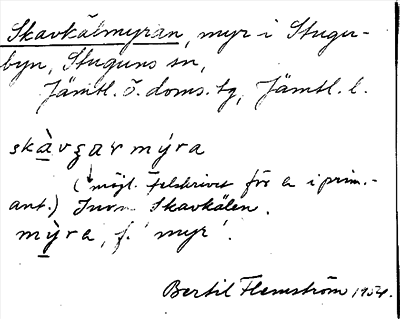 Skavkälmyran, myr i Stugu-
byn, Stuguns sn,
Jämtl. ö. doms. tg, Jämtl. l.
skàvgar mýra
(möjl. felskrivet för a i prim.-
ant.) Inom Skavkälen.
mỳra, f. 'myr'.
Bertil Flemström 1954.